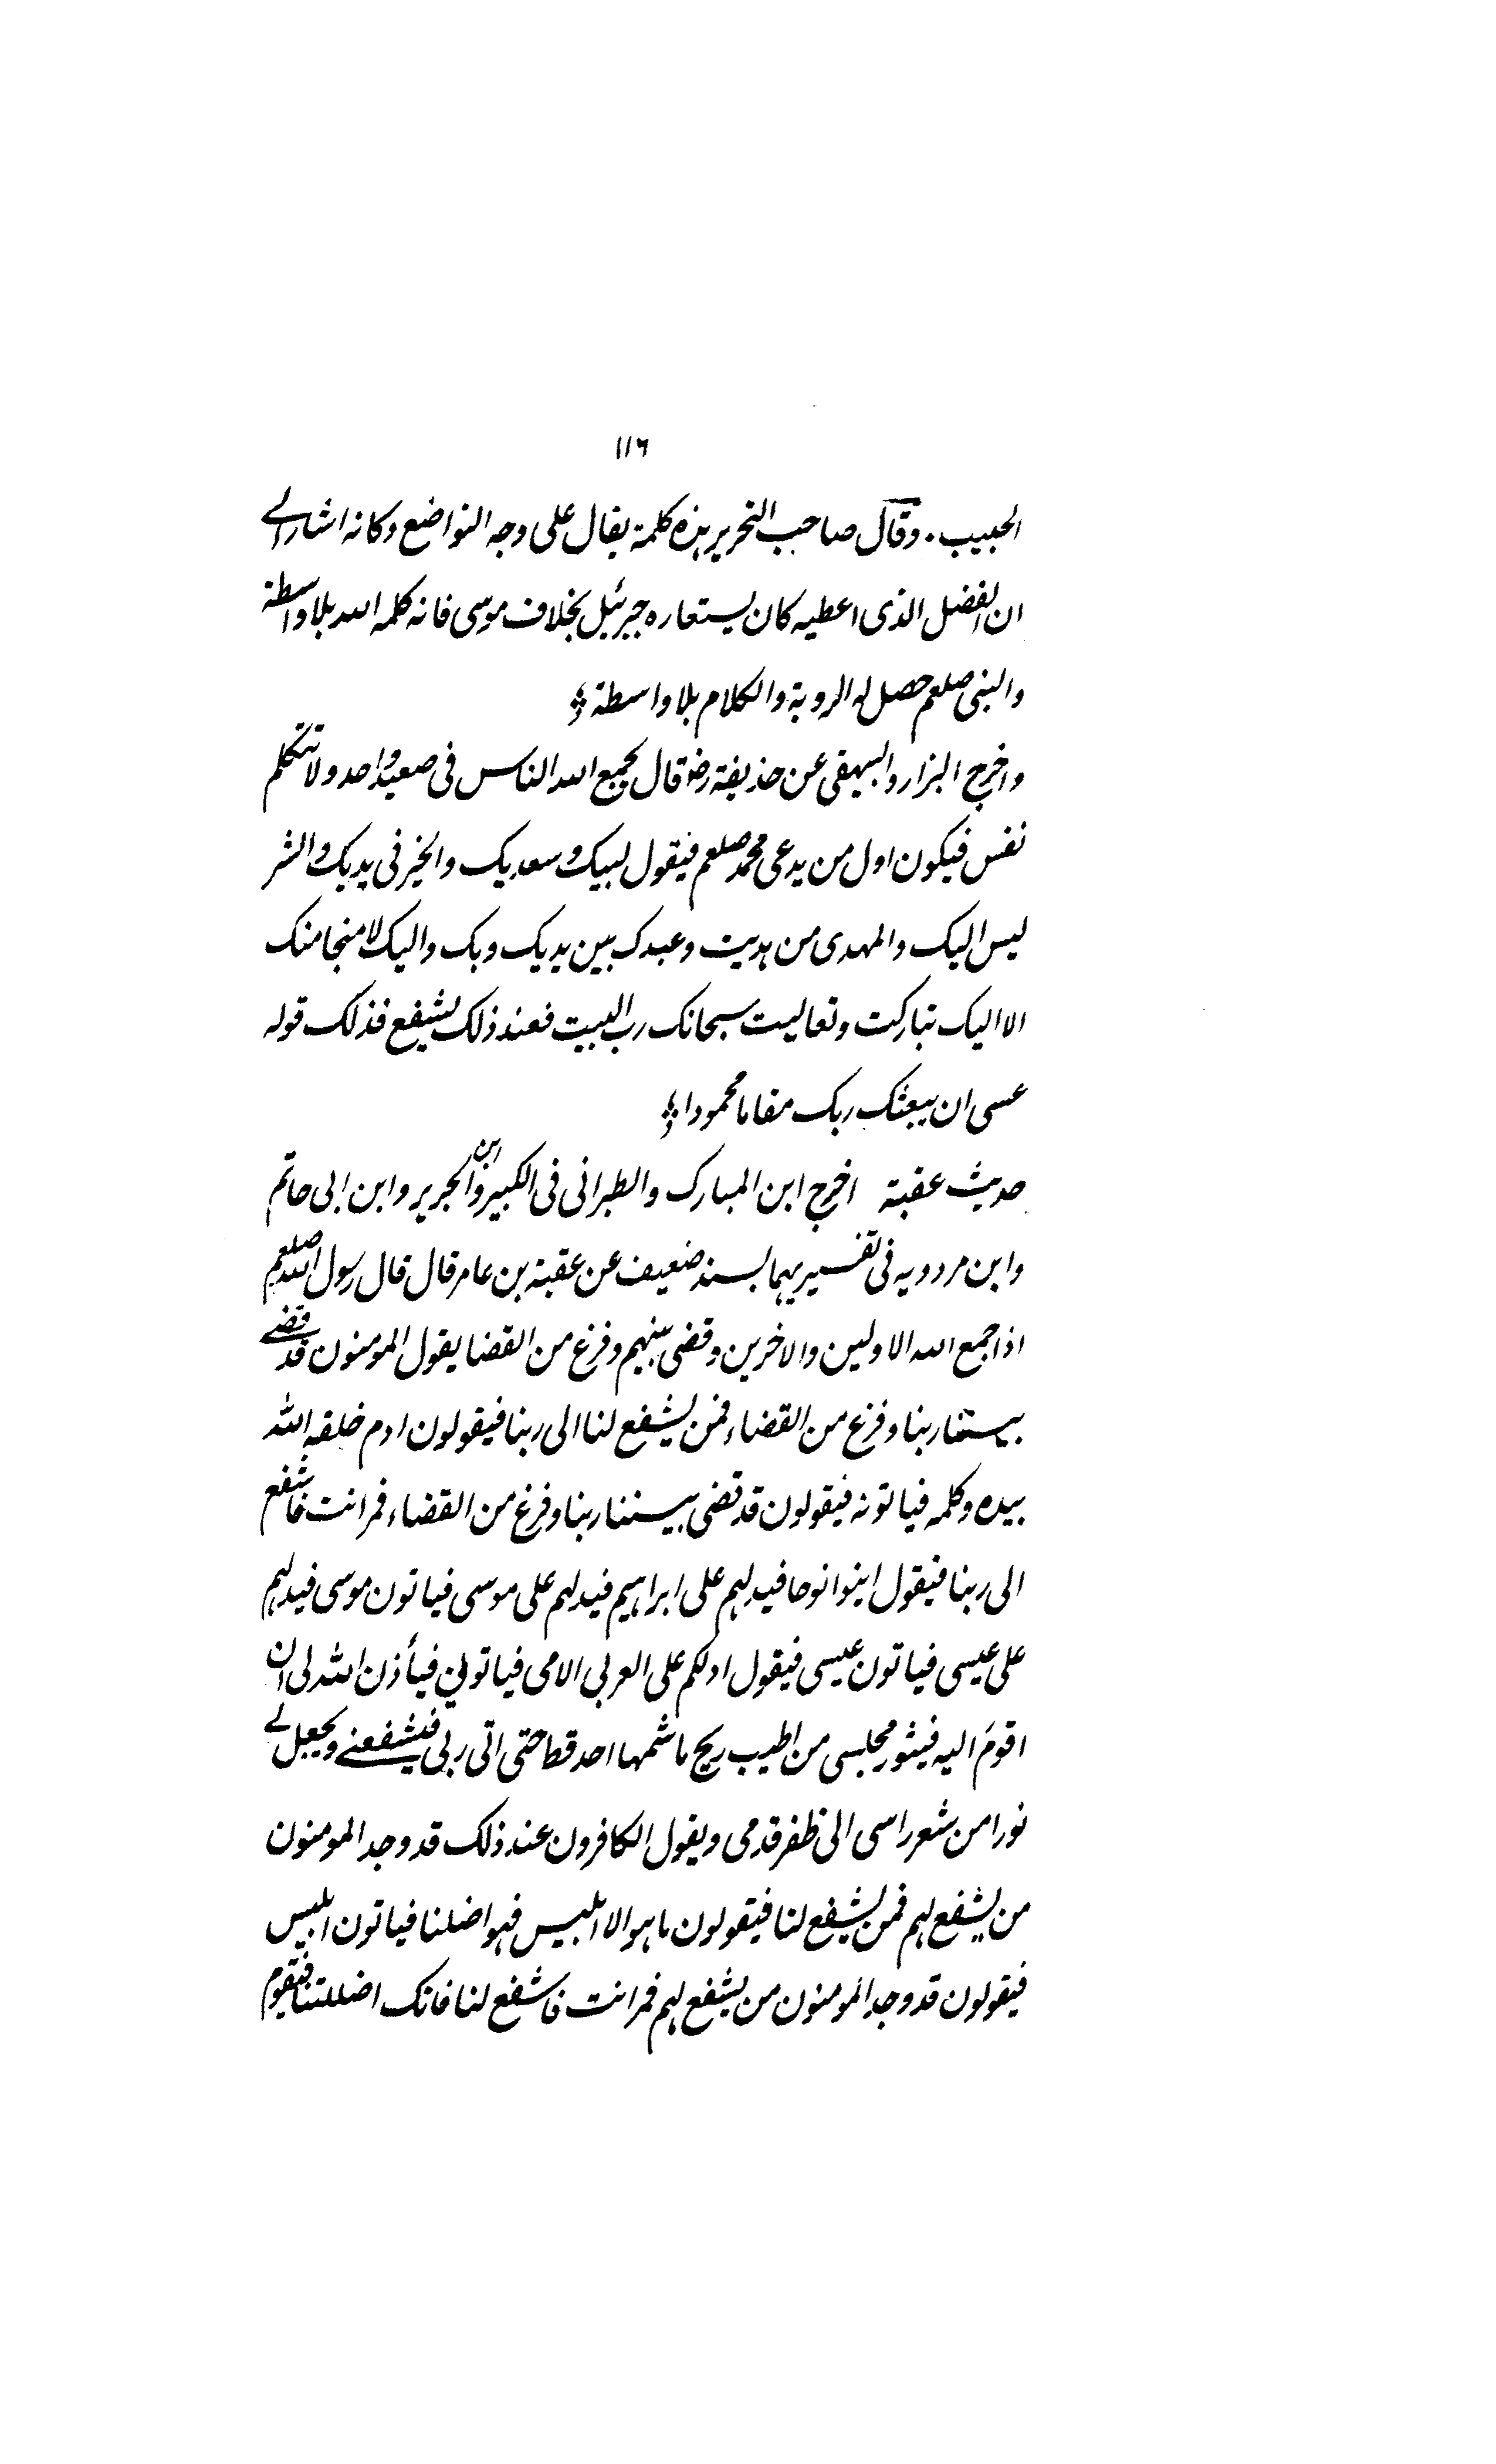 ١١٦
الحبيب. وقال صاحب التحرير هذه كلمة يقال على وجه التواضع وكانه اشار الى
ان الفضل الذى اعطيه كان يستعاره جبرئيل بخلاف موسى فانه كلمه الله بلا واسطة
والنبى صلعم حصل له الروية والكلام بلا واسطة
واخرج البزار والبيهقى عن حذيفة رضـ قال يجمع الله الناس فى صعيد واحد ولا تتكلم
نفس فيكون اول من يدعى محمد صلعم فيقول لبيك وسعديك والخير فى يديك والشر
ليس اليك والمهدى من هديت وعبدك بين يديك وبك واليك لا منجا منك
الا اليك تباركت وتعاليت سبحانك رب البيت فعند ذلك يشفع فذلك قوله
عسى ان يبعثك ربك مقاما محمودا
حديث عقبة اخرج ابن المبارك والطبرانى فى الكبير وابن الجرير وابن ابى حاتم
وابن مردويه فى تفسيريهما بسند ضعيف عن عقبة بن عامر قال قال رسول الله صلعم
اذا جمع الله الاولين والاخرين وقضى بينهم وفرغ من القضا يقول المومنون قد قضى
بيننا ربنا وفرغ من القضاء فمن يشفع لنا الى ربنا فيقولون ادم خلقه الله
بيده وكلمه فياتونه فيقولون قد قضى بيننا ربنا وفرغ من القضاء فمر انت فاشفع
الى ربنا فيقول ايتوا نوحا فيدلهم على ابراهيم فيدلهم على موسى فياتون موسى فيدلهم
على عيسى فياتون عيسى فيقول ادلكم على العربى الامى فياتونى فيأذن الله لى ان
اقوم اليه فيثور مجلسى من اطيب ريح ما شمها احد قط حتى اتى ربى فيشفعنى ويجعل لى
نورا من شعر راسى الى ظفر قدمى ويقول الكافرون عند ذلك قد وجد المومنون
من يشفع لهم فمن يشفع لنا فيقولون ما هو الا ابليس فهو اضلنا فياتون ابليس
فيقولون قد وجد المومنون من يشفع لهم فمر انت فاشفع لنا فانك اضللتنا فيقوم